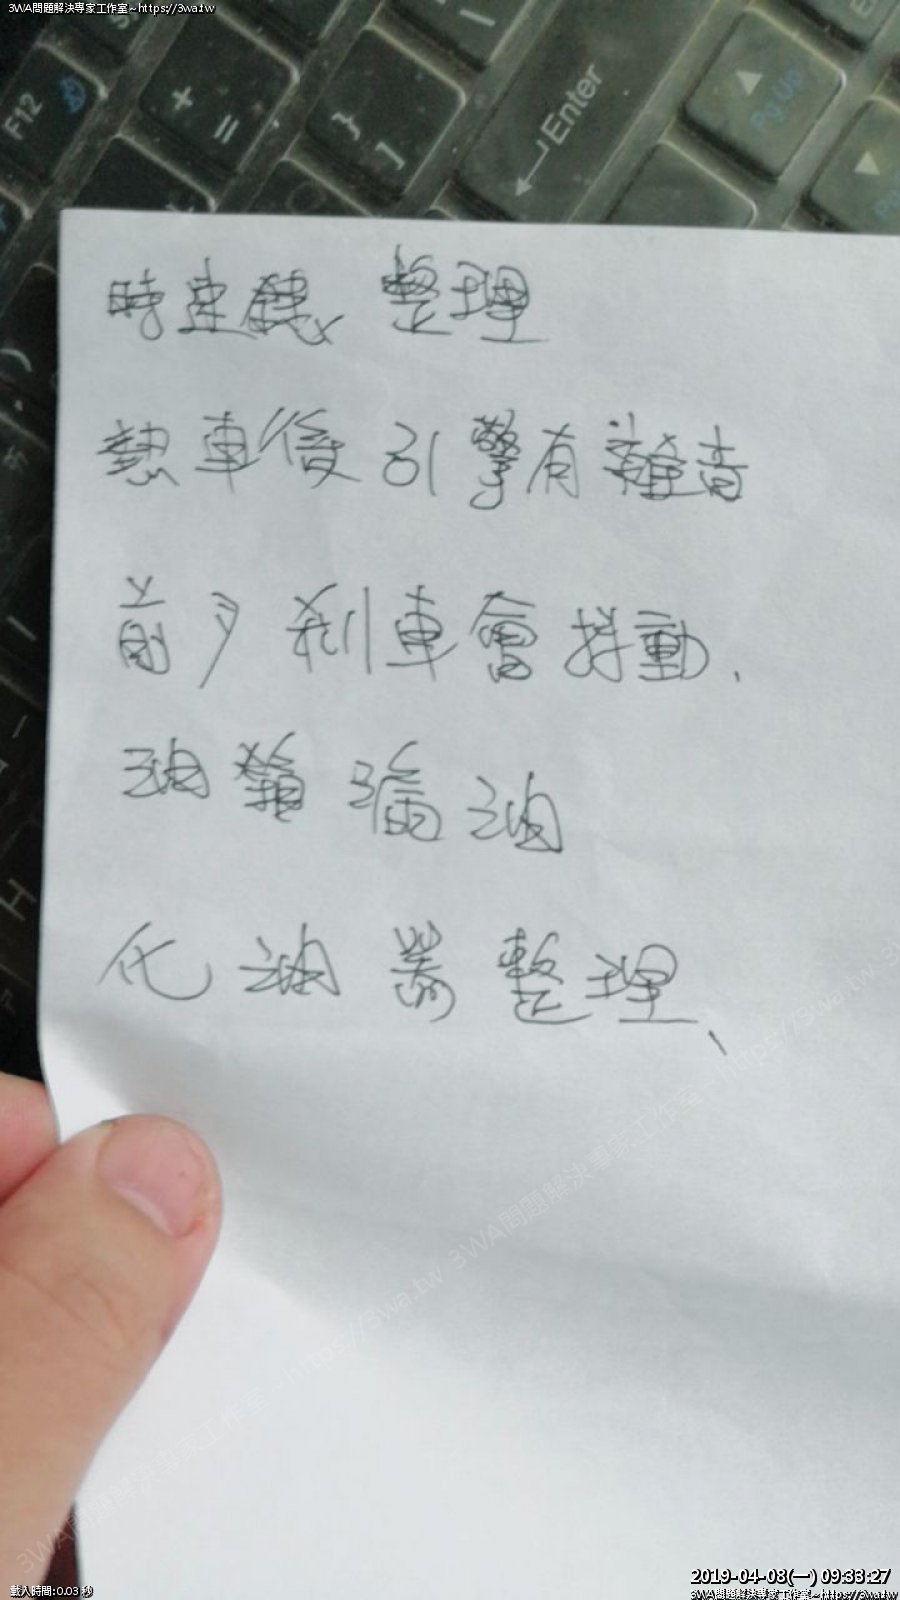 3WA問題解決專家工作室~https://3wa.tw
F12
+
=
}
]
Enter
PgUp
時速錶 整理
熱車後引擎有雜音
前 剎車會抖動.
油鎖漏油
化油器整理、
3WA問題解決專家工作室~https://3wa.tw
載入時間:0.03 秒
2019-04-08(一) 09:33:27
3WA問題解決專家工作室~https://3wa.tw